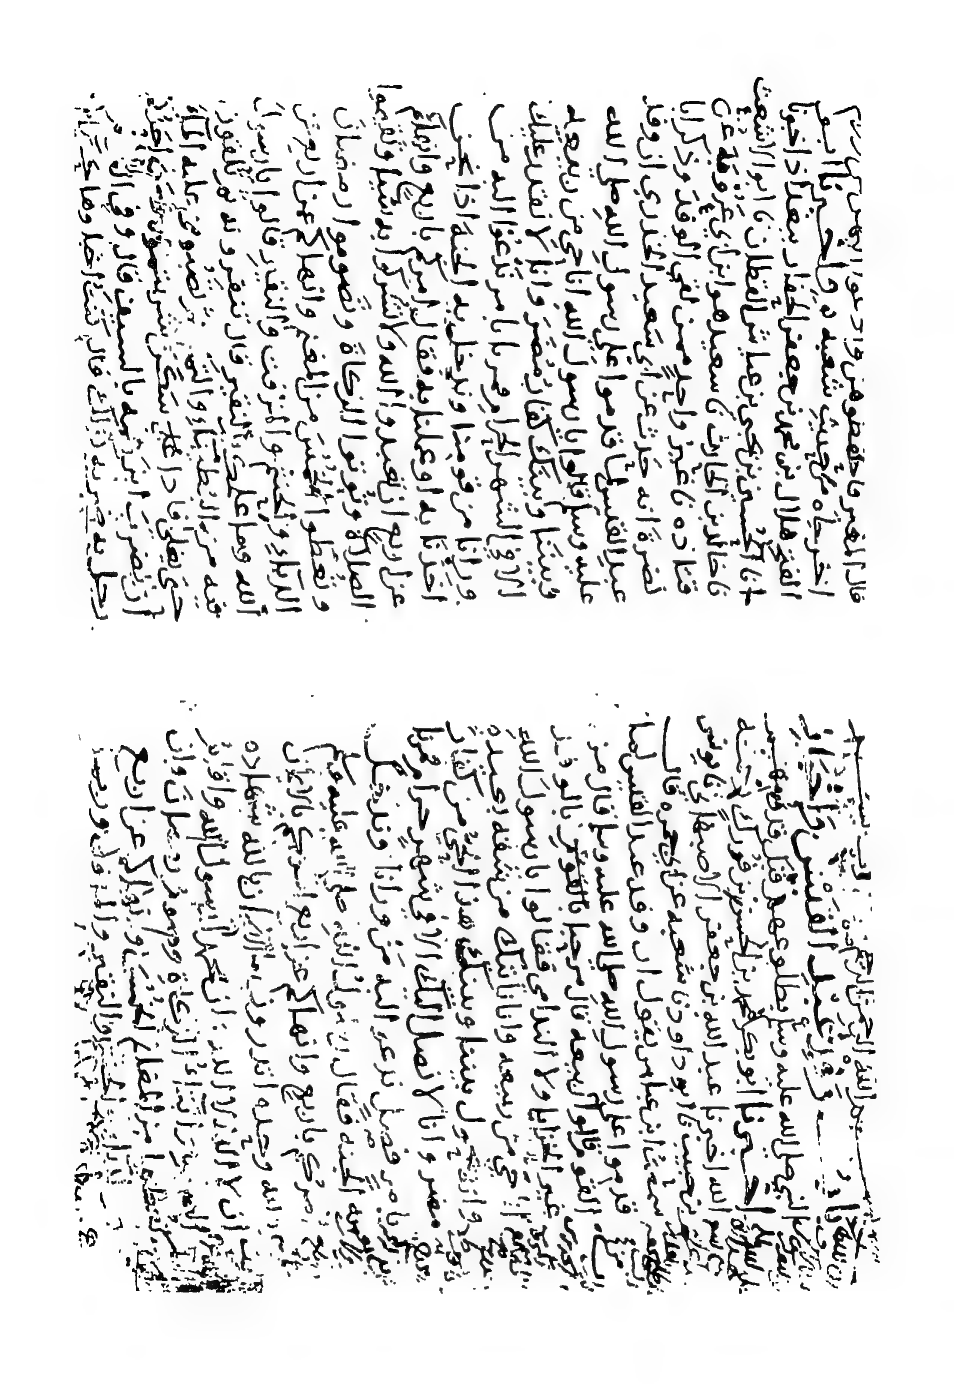 بسم الله الرحمن الرحيم
وفد عبد القيس واخبار
النبي صلى الله عليه وسلم بطلوعهم قبل قدومهم
اخبرنا ابو بكر محمد بن الحسن بن فورك رحمه
الله اخبرنا عبد الله بن جعفر الاصبهاني نا يونس
بن حبيب نا ابو داود نا شعبه عن ابي جمره قال
سمعت ابن عباس يقول ان وفد عبد القيس لما
قدموا على رسول الله صلى الله عليه وسلم قال من
القوم قالوا من ربيعه قال مرحبا بالقوم او بالوفد
غير الخزايا ولا الندامى فقالوا يا رسول الله
انا حي من ربيعه وانا ناتيك من شقه بعيده
وانه يحول بيننا وبينك هذا الحي من كفار
مضر وانا لا نصل اليك الا في شهر حرام فمرنا
بامر فصل ندعو اليه من ورانا وندخل
به الجنه فقال رسول الله صلى الله عليه وسلم
امركم باربع وانهاكم عن اربع امركم بالايمان
بالله وحده اتدرون ما الايمان بالله شهاده
ان لا اله الا الله وان محمدا رسول الله واقام
الصلاة وايتاء الزكاة وصوم رمضان وان
تعطوا من المغانم الخمس وانهاكم عن اربع
عن الدباء والحنتم والنقير والمزفت وربما
قال المقير فاحفظوهن وادعوا اليهن من وراكم
اخرجاه من حديث شعبه واخبرنا ابو
الفتح هلال بن محمد بن جعفر الحفار ببغداد اخبرنا
انا الحسين بن يحيى بن عياش القطان نا ابو الاشعث
نا خالد بن الحارث نا سعيد هو ابن ابي عروبة عن
قتادة نا غير واحد ممن لقي الوفد وذكر ابا
نضرة انه حدث عن ابي سعيد الخدري ان وفد
عبد القيس لما قدموا على رسول الله صلى الله
عليه وسلم قالوا يا رسول الله انا حي من ربيعه
وبيننا وبينك كفار مضر وانا لا نقدر عليك
الا في الشهر الحرام فمرنا بامر ندعوا اليه من
ورانا من قومنا وندخل به الجنة اذا نحن
اخذنا به او عملنا به فقال امركم باربع وانهاكم
عن اربع ان تعبدوا الله ولا تشركوا به شيا وتقيموا
الصلاة وتوتوا الزكاة وتصوموا رمضان
وتعطوا الخمس من المغنم وانهاكم عن اربع عن
الدباء والحنتم والمزفت والنقير قالوا يا رسول
الله وما علمك بالنقير قال تنقرونه ثم تلقون
فيه من القطيعاء والتمر ثم تصبون عليه الماء
حتى يغلي فاذا سكن شربتموه
ان يضرب ابن عمه بالسيف قال وفي القوم
رجل به ضربة كذلك قال كنت اخباوها حياء